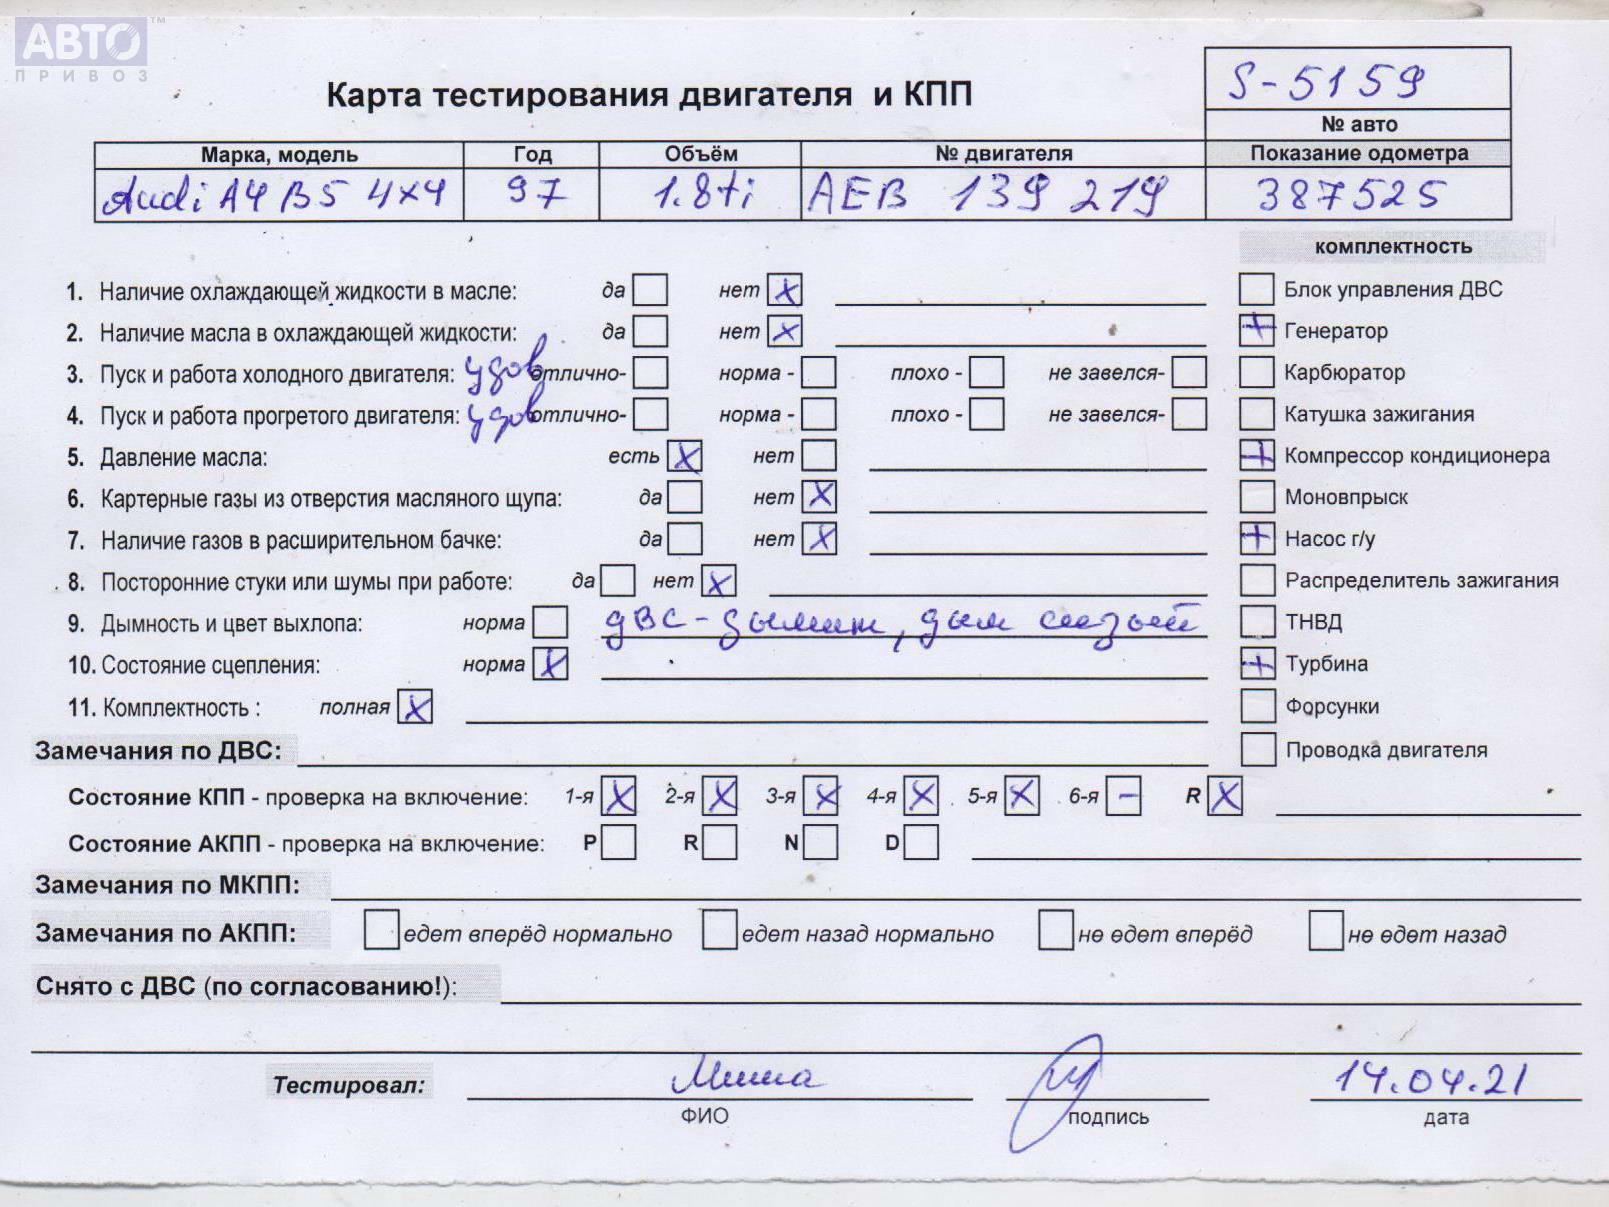 АВТО™
ПРИВОЗ
S-5159
Карта тестирования двигателя и КПП
№ авто
Марка, модель Год Объём № двигателя Показание одометра
Audi A4 B5 4x4 97 1.8ti AEB 139 219 387525
комплектность
1. Наличие охлаждающей жидкости в масле: да нет x Блок управления ДВС
2. Наличие масла в охлаждающей жидкости: да нет x + Генератор
3. Пуск и работа холодного двигателя: удов отлично- норма - плохо - не завелся- Карбюратор
4. Пуск и работа прогретого двигателя: удов отлично- норма - плохо - не завелся- Катушка зажигания
5. Давление масла: есть x нет + Компрессор кондиционера
6. Картерные газы из отверстия масляного щупа: да нет x Моновпрыск
7. Наличие газов в расширительном бачке: да нет x + Насос г/у
8. Посторонние стуки или шумы при работе: да нет x Распределитель зажигания
9. Дымность и цвет выхлопа: норма ДВС - дымит, дым сизый ТНВД
10. Состояние сцепления: норма x + Турбина
11. Комплектность : полная x Форсунки
Замечания по ДВС: Проводка двигателя
Состояние КПП - проверка на включение: 1-я x 2-я x 3-я x 4-я x 5-я x 6-я - R x
Состояние АКПП - проверка на включение: P R N D
Замечания по МКПП:
Замечания по АКПП: едет вперёд нормально едет назад нормально не едет вперёд не едет назад
Снято с ДВС (по согласованию!):
Тестировал: Миша 14.04.21
ФИО подпись дата